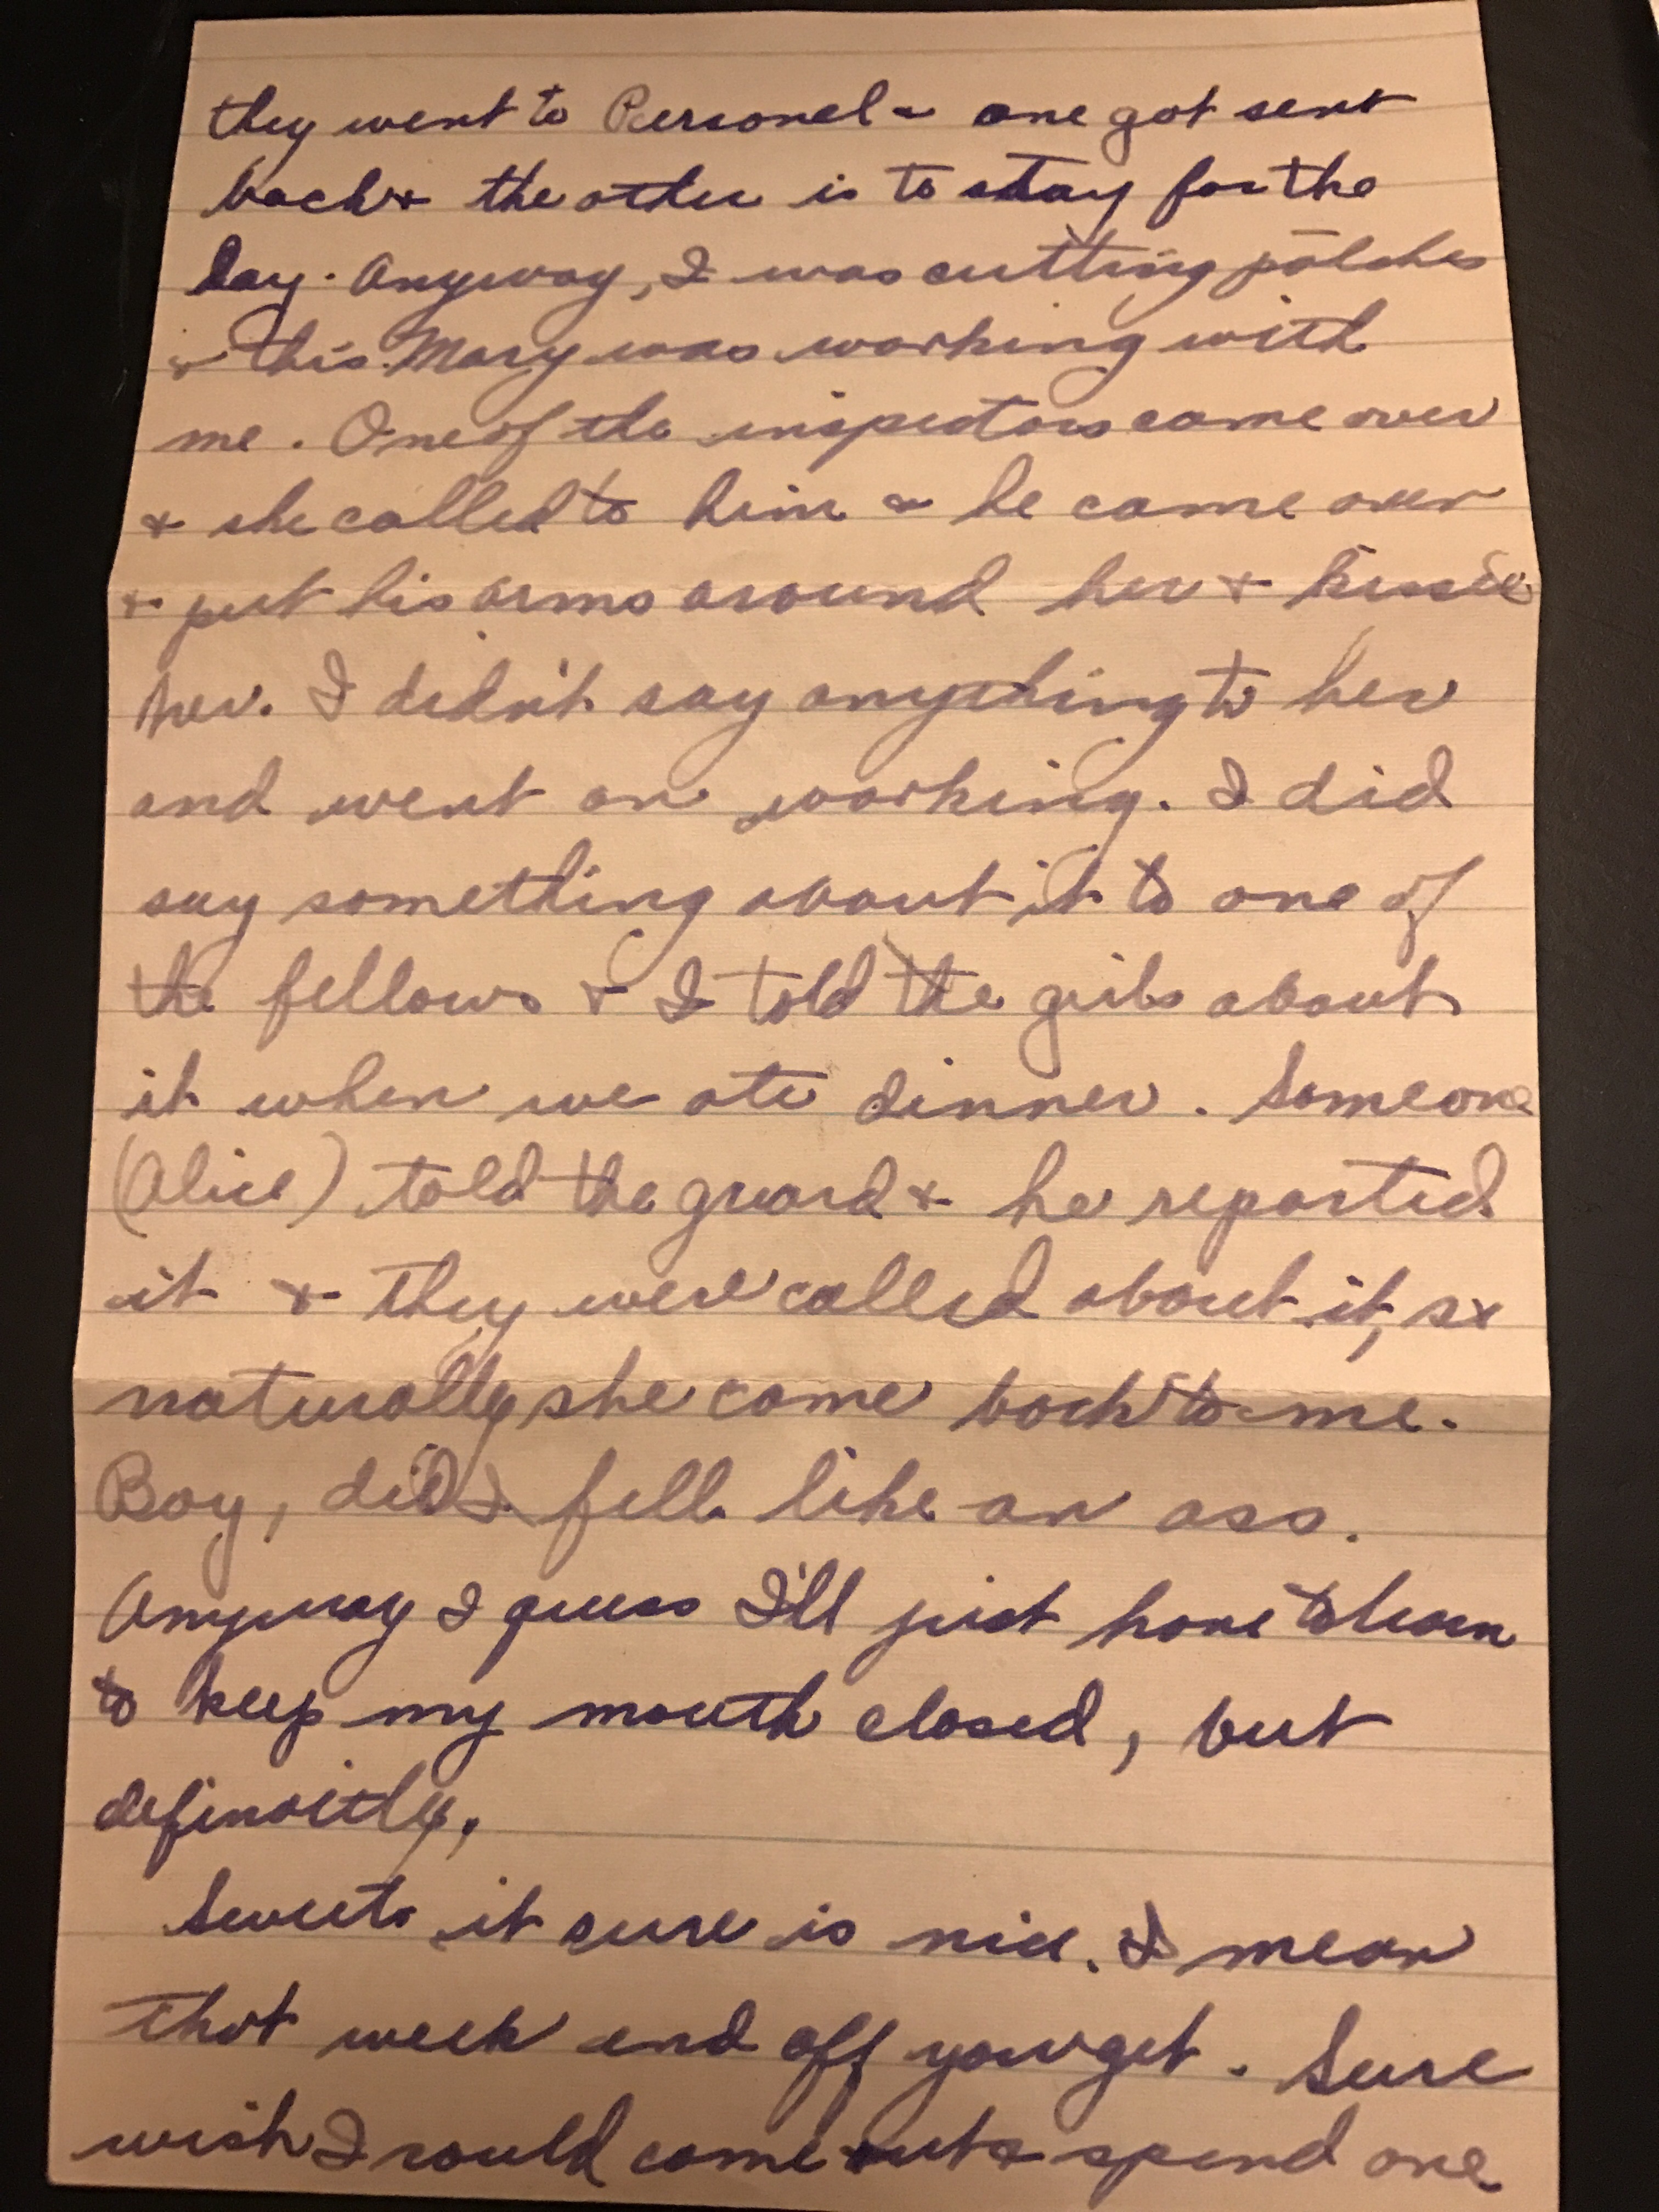 they went to Personel & one got sent
back & the other is to stay for the
day. Anyway, I was cutting patches
& this Mary was working with
me. One of the inspectors came over
& she called to him & he came over
& put his arms around her & kissed
her. I didn't say anything to her
and went on working. I did
say something about it to one of
the fellows & I told the girls about
it when we ate dinner. Someone
(Alice) told the guard & he reported
it & they were called about it, so
naturally she came back to me.
Boy, did I fell like an ass.
Anyway I guess I'll just have to learn
to keep my mouth closed, but
definaitly.
Sweets it sure is nice. I mean
that week end off you get. Sure
wish I could come out & spend one